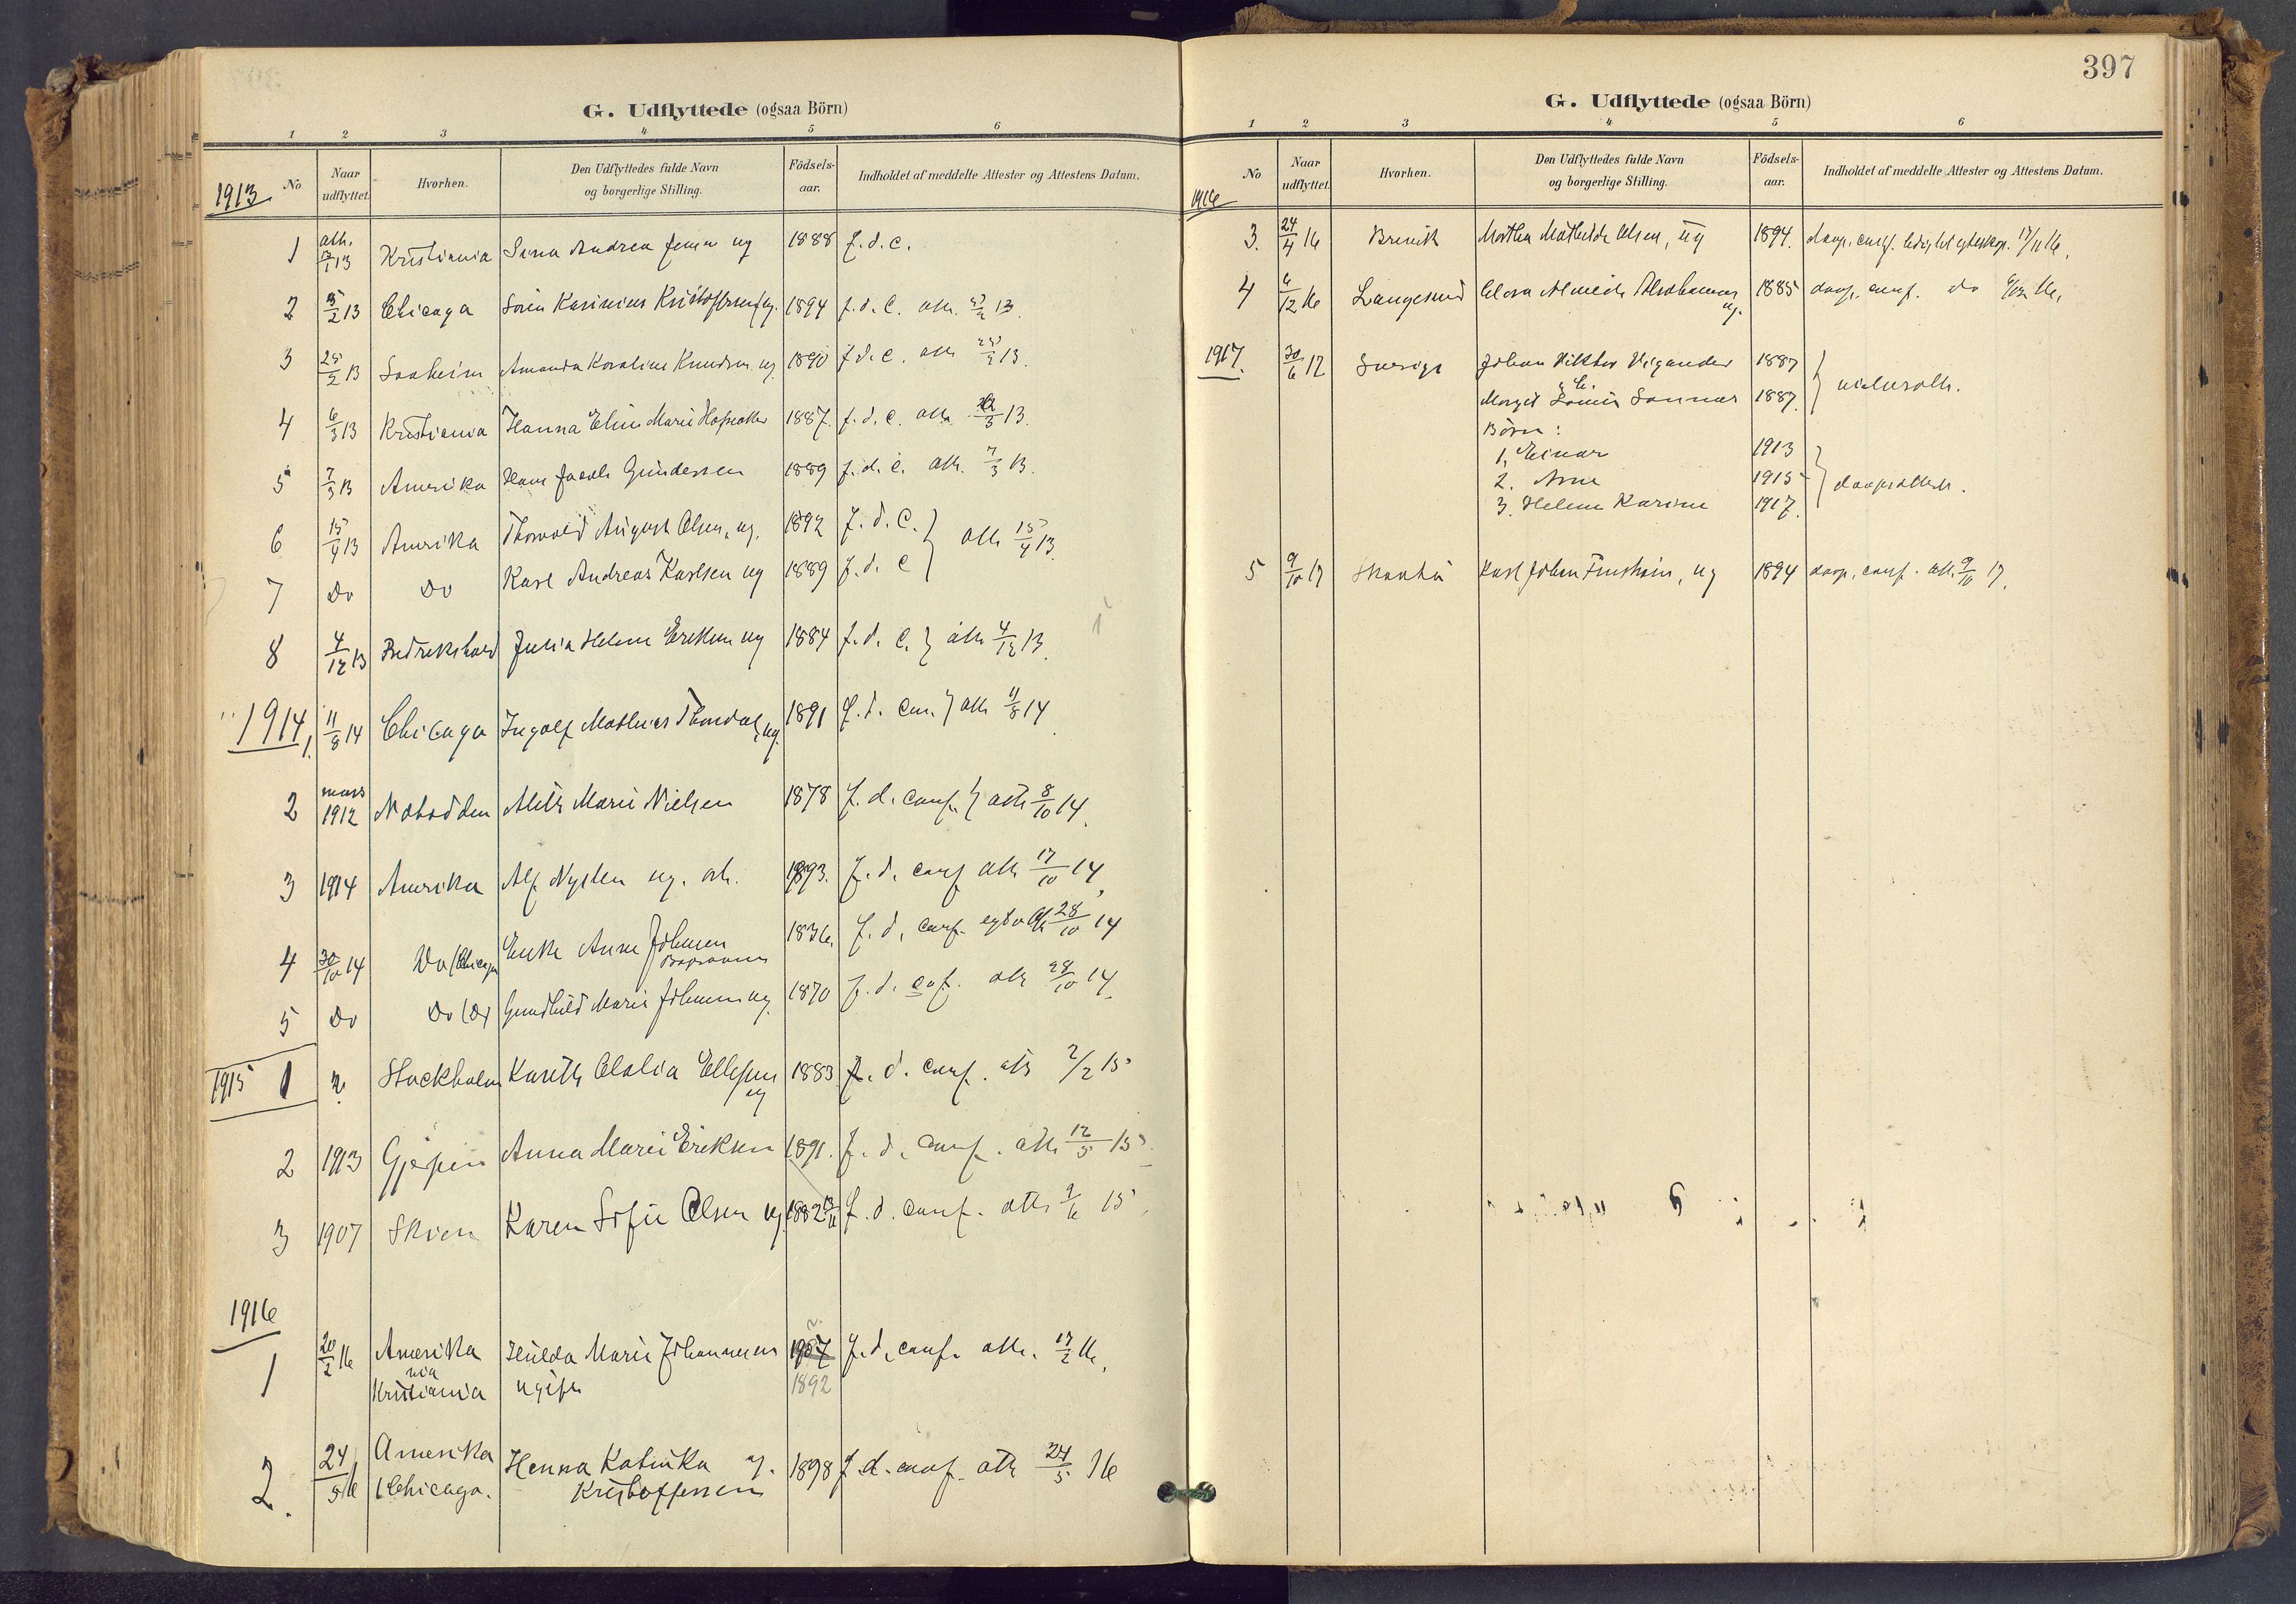 G. Udflyttede (ogsaa Börn)
1 2 3 4 5 6
1913 No Naar udflyttet. Hvorhen. Den Udflyttedes fulde Navn og borgerlige Stilling. Födsels-aar. Indholdet af meddelte Attester og Attestens Datum.
1 att. 13 Kristiania Andrea ug 1888 f. d. c.
2 15/2 13 Chicago Sörin Karinius Kristoffersen ug. 1894 f. d. c. att. 13.
3 25/2 13 Saaheim Amanda Karoline Knudsen ug. 1890 f. d. c. att 13.
4 6/3 13 Kristiania Hanna Elise Marie 1887. f. d. c. att 13.
5 7/3 13 Amerika Hans Jacob Gundersen 1889 f. d. c. att. 7/3 13.
6 15/4 13 Amerika Thorvald August Olsen, ug. 1892 f. d. c. } att 15/4 13
7 Do Do Karl Andreas Karlsen ug 1889 f. d. c
8 4/12 13 Fredrikshald Julia Helene Eriksen ug 1884 f. d. c. } att 4/12 13.
1914 1. 11/8 14 Chicago Ingolf Mathias Thordal, ug. 1891 f. d. con. } att 11/8 14
2 mars 1912 Notodden Marie Nielsen 1878 f. d. conf. } att 8/10 14.
3 1914 Amerika Alf ug. arb. 1893. f. d. conf att 17/10 14
4 30/10 14 Do (Chicago Enke Anne Johnsen 1836. f. d. conf. att 28/10 14
5 Do Do (Do) Gundhild Marie Johnsen ug. 1870 f. d. conf. att 28/10 14.
1915 1 ? Stockholm Olalia Ellefsen ug 1883 f. d. conf. att 2/2 15
2 1913 Gjerpen Anna Marie Eriksen 1891. f. d. conf. att 12/5 15
3 1907 Skien Karen Sofie Olsen ug. 1882 f. d. conf. att 15
1916
1 20/2 16 Amerika via Kristiania Hulda Marie Johannesen ugift 1907 1892 f. d. conf. att. 17/2 16.
2. 24/5 16 Amerika (Chicago. Henna Katinka ug. Kristoffersen 1898 f. d. conf. att 24/5 16
397
G. Udflyttede (ogsaa Börn)
1 2 3 4 5 6
1916 No Naar udflyttet. Hvorhen. Den Udflyttedes fulde Navn og borgerlige Stilling. Födsels-aar. Indholdet af meddelte Attester og Attestens Datum.
3. 24/4 16 Brevik Martha Mathilde Olsen, ug 1894. daap, conf. 16.
4 6/12 16 Langesund ug. 1885 daap, conf. do 6/12 16.
1917. 30/6 17 Sverige Johan Viktor Vigander 1887 } vielsesatt.
Margit Sannes 1887.
Börn:
1. Einar 1913
2. Arne 1915 } daapsattest.
3. Helene Karine 1917.
5 9/10 17 Karl Johan ug 1894 daap, conf. att. 9/10 17.